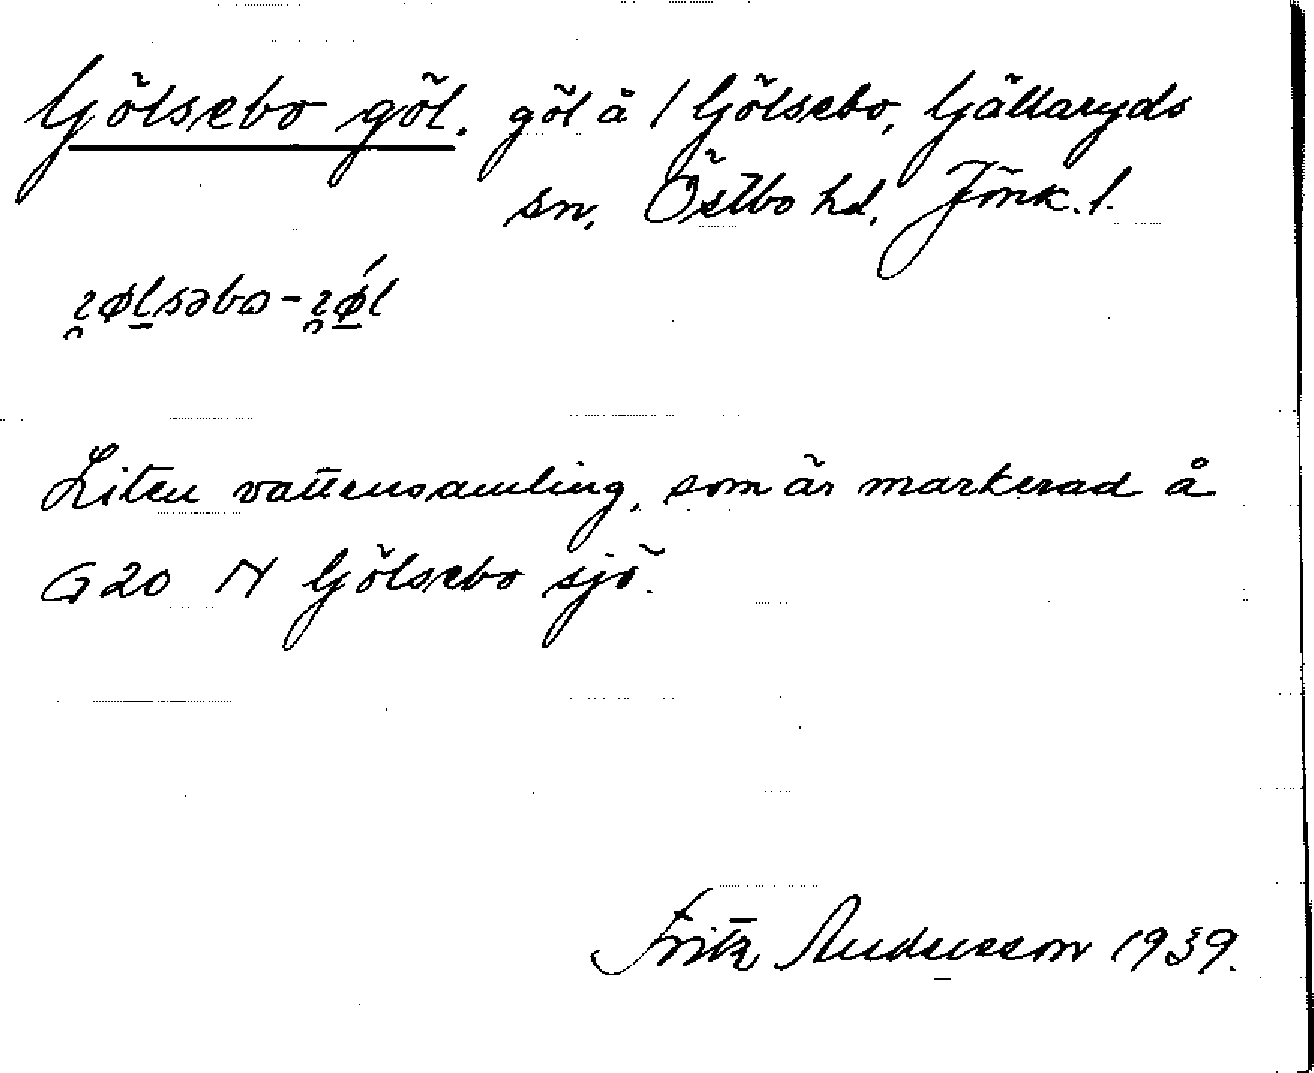 Gölsebo göl. göl å 1 Gölsebo, Gällaryds
sn, Östbo hd, Jönk. l.
Liten vattensamling, som är markerad å
G20 N Gölsebo sjö.
Fritz Andersson 1939.